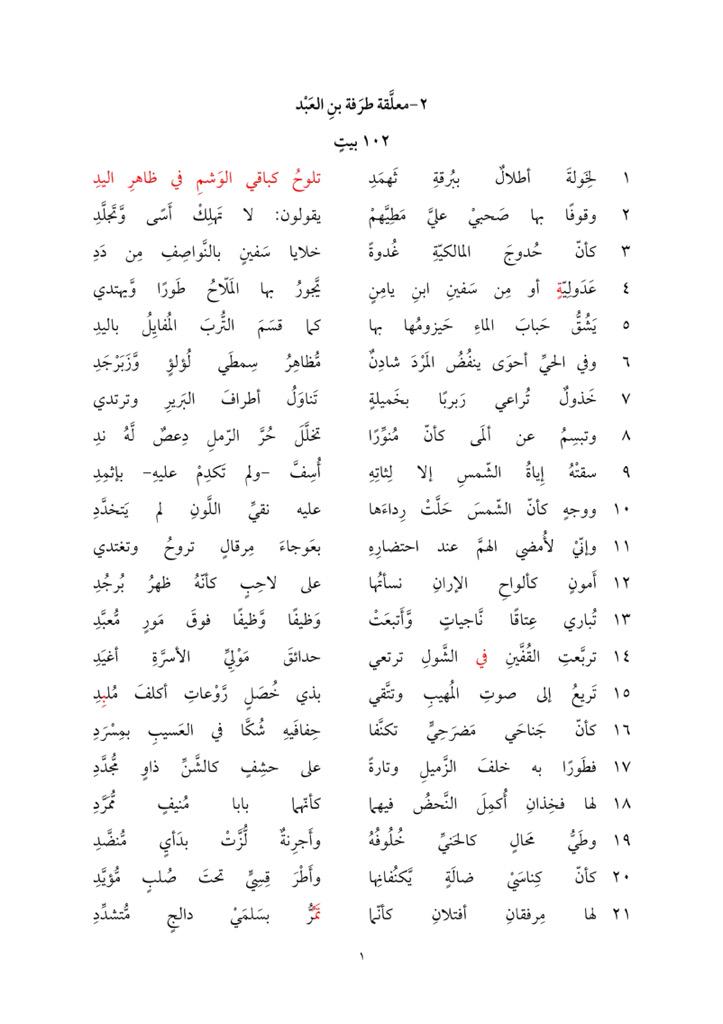 ٢-معلَّقة طرَفة بنِ العَبْد
١٠٢ بيتٍ
١ لِخَولةَ أطلالٌ ببُرقةِ ثَهمَدِ تلوحُ كباقي الوَشمِ في ظاهرِ اليدِ
٢ وقوفًا بها صَحبيْ عليَّ مَطِيَّهمْ يقولون: لا تَهلِكْ أَسًى وَّتجَلَّدِ
٣ كأنّ حُدوجَ المالكيّةِ غُدوةً خلايا سَفينٍ بالنَّواصِفِ مِن دَدِ
٤ عَدَولِيّةٍ أو مِن سَفينِ ابنِ يامِنٍ يَّجورُ بها المَلّاحُ طَورًا وَّيهتدي
٥ يَشُقُّ حَبابَ الماءِ حَيزومُها بها كما قسَمَ التُّربَ المُفايِلُ باليدِ
٦ وفي الحيِّ أحوَى ينفُضُ المَرْدَ شادِنٌ مُّظاهِرُ سِمطَي لُؤلؤٍ وَّزَبَرْجَدِ
٧ خَذولٌ تُراعي رَبربًا بخَميلةٍ تَناوَلُ أطرافَ البَريرِ وترتدي
٨ وتبسِمُ عن ألمَى كأنّ مُنوِّرًا تخلَّلَ حُرَّ الرّملِ دِعصٌ لَّهُ ندِ
٩ سقتْهُ إياةُ الشّمسِ إلا لِثاتِهِ أُسِفَّ -ولم تَكدِمْ عليهِ- بإثمِدِ
١٠ ووجهٍ كأنّ الشّمسَ حَلَّتْ رِداءَها عليه نقيِّ اللَّونِ لم يَتخدَّدِ
١١ وإنّيْ لأُمضي الهمَّ عند احتضارِهِ بعَوجاءَ مِرقالٍ تروحُ وتغتدي
١٢ أَمونٍ كألواحِ الإرانِ نسأتُها على لاحِبٍ كأنّهُ ظهرُ بُرجُدِ
١٣ تُباري عِتاقًا نَّاجياتٍ وَّأَتبعَتْ وَظيفًا وَّظيفًا فوقَ مَورٍ مُّعبَّدِ
١٤ تربَّعتِ القُفَّينِ في الشَّولِ ترتعي حدائقَ مَوْليِّ الأسرَّةِ أغيَدِ
١٥ تَريعُ إلى صوتِ المُهيبِ وتتَّقي بذي خُصَلٍ رَّوْعاتِ أكلفَ مُلبِدِ
١٦ كأنّ جَناحَي مَضرَحِيٍّ تكنَّفا حِفافَيهِ شُكَّا في العَسيبِ بمِسْرَدِ
١٧ فطَورًا به خلفَ الزَّميلِ وتارةً على حشِفٍ كالشَّنِّ ذاوٍ مُّجدَّدِ
١٨ لها فخِذانِ أُكمِلَ النَّحضُ فيهما كأنّهما بابا مُنيفٍ مُّمَرَّدِ
١٩ وطَيُّ مَحالٍ كالحَنيِّ خُلُوفُهُ وأَجرِنةٌ لُّزَّتْ بدَأيٍ مُّنضَّدِ
٢٠ كأنّ كِناسَيْ ضالَةٍ يَّكنُفانِها وأَطْرَ قِسِيٍّ تحتَ صُلبٍ مُّؤيَّدِ
٢١ لها مِرفقانِ أفتلانِ كأنّما تَمُرُّ بسَلمَيْ دالجٍ مُّتشدِّدِ
١